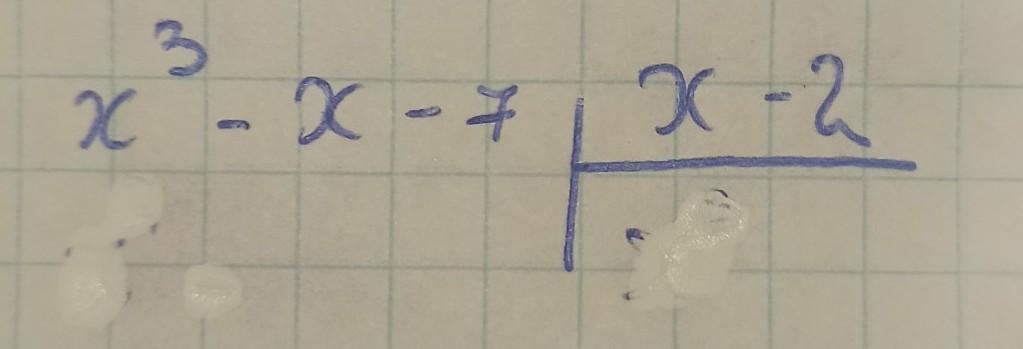 x³ - x - 7 | x - 2